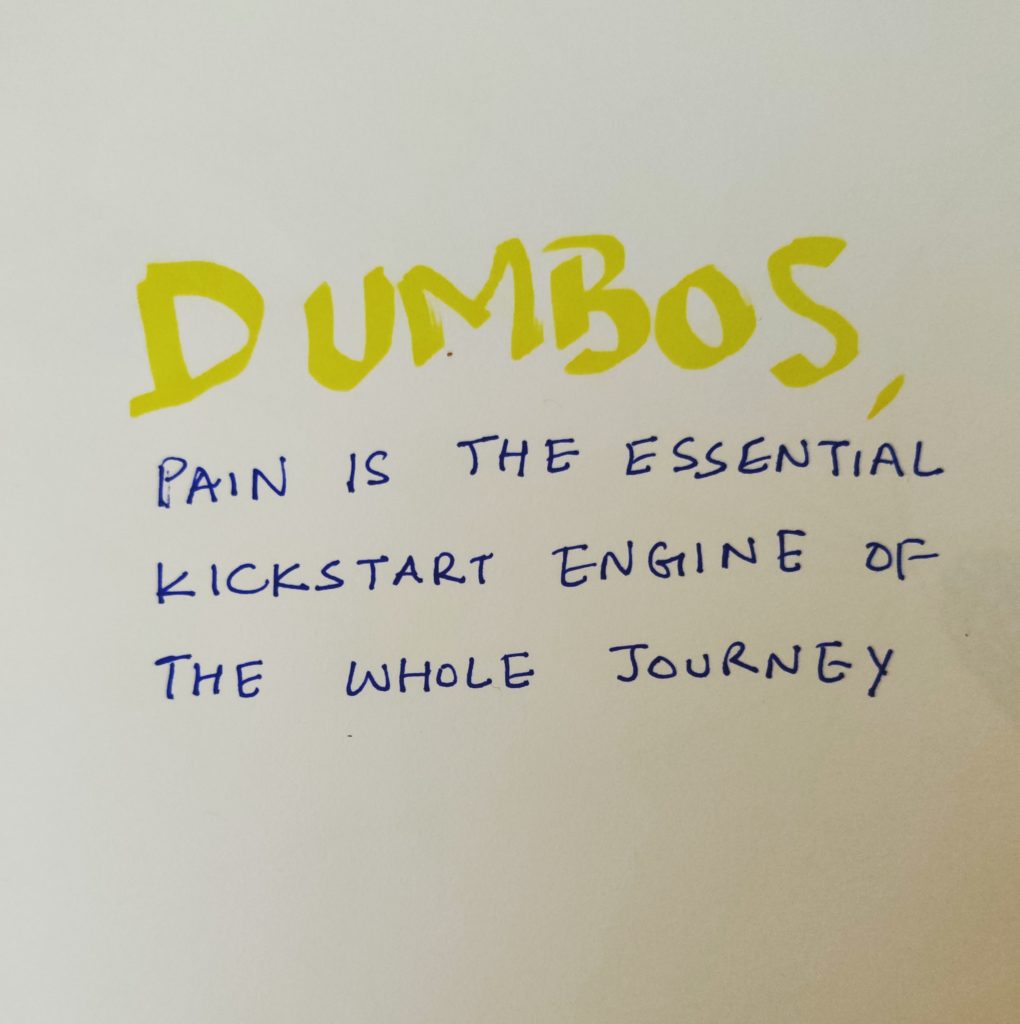 DUMBOS,
PAIN IS THE ESSENTIAL
KICKSTART ENGINE OF
THE WHOLE JOURNEY